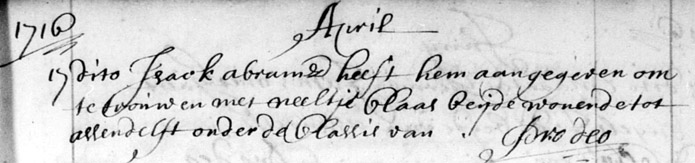 1716
April
17 dito Isack abramsz heeft hem aangegeven om
te trouwen met neeltie Claas beyde wonende tot
assendelft onder de Classis van . Pro deo